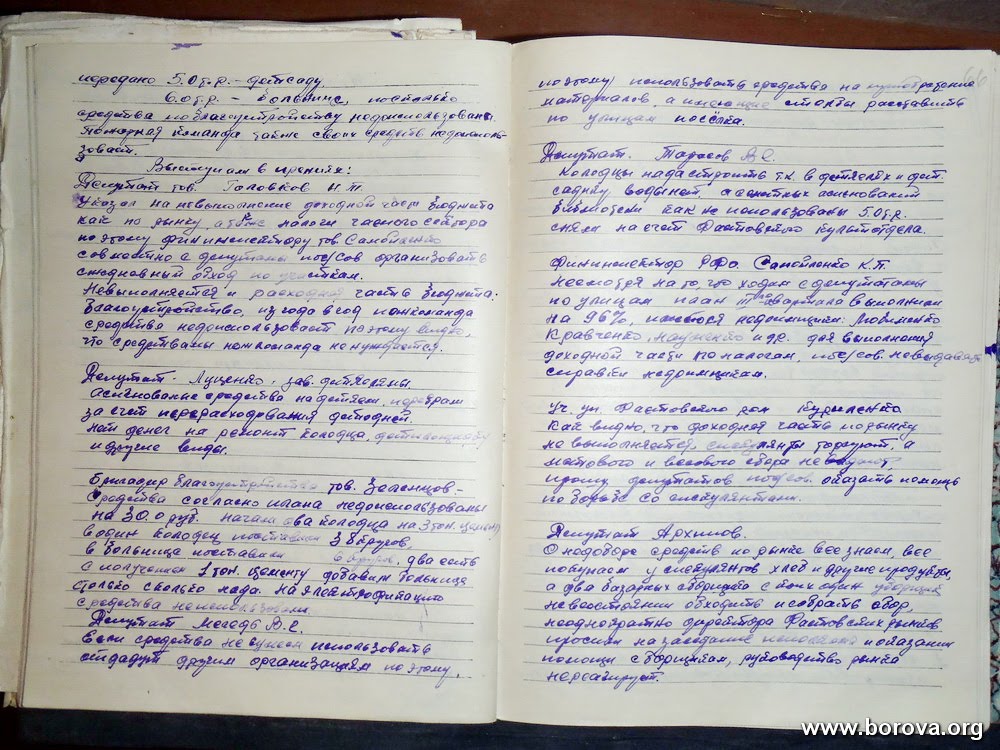 передано 5.0 т.р. – детсаду,
6.0 т.р. – больнице, поскольку
средства по благоустройству недоиспользованы.
Пожарная команда также своих средств недоисполь-
зовает.
Выступали в прениях:
Депутат тов. Головков Н.П.
Указал на невыполнение доходной части бюджета
как по рынку, а также налоги частного сектора
поэтому фининспектору тов. Самойленко
совместно с депутатами пос/сов организовать
ежедневный обход по участкам.
Невыполняется и расходная часть бюджета:
Благоустройство, из года в год пожкоманда
средства недоиспользовает поэтому видно,
что средствами пожкоманда не нуждается.
Депутат. Луценко. зав. детяслями.
асигнование средства на детясли, перебрали
за счет перерасходования детодней.
Нет денег на ремонт колодца,
и другие виды.
Бригадир благоустройства тов.
Средства согласно плана недоиспользованы
на 30.0 руб. начали два колодца на 3 тон. цемент
в один колодец поставили 3 бругов,
в больнице поставили 6 бругов, два есть
с получением 1 тон. цементу добавим больнице
столько сколько надо. На электрофикацию
средства неиспользованы.
Депутат Мегедь В.Е.
если средства не сумеем использовать
отдадут другим организациям поэтому
поэтому использовать средства на приобретение
материалов, а имеющие столбы расставить
по улицам посёлка.
Депутат. Тарасов В.С.
Колодцы надо строить т.к. в детяслях и дет-
садику воды нет с сметных асигнований
библиотеки как не использованы 5.0 т.р.
сняли на счет Фастовского культотдела.
Фининспектор РФО. Самойленко К.П.
Несмотря на то, что ходим с депутатами
по улицам план квартала выполнили
на 96%, имеются недоимщики: Любименко
Кравченко, и др. для выполнения
доходной части по налогам, пос/сов. невыдавать
справки недоимщикам.
Уч. уп. Фастовского ром Куриленко
Как видно, что доходная часть по рынку
не выполняется, спекулянты торгуют, а
мотового и весового сбора не
прошу депутатов пос/сов. оказать помощь
по борьбе со спекулянтами.
Депутат Архипов.
О недоборе средств по рынке все знаем, все
покупаем у спекулянтов хлеб и другие продукты,
а два базарных сборщика с поих один уборщик
невсостоянии обходить и собрать сбор,
неоднократно директора Фастовских рынков
просили на заседание исполкома и оказании
помощи сборщикам, руководство рынка
нереагирует.
www.borova.org